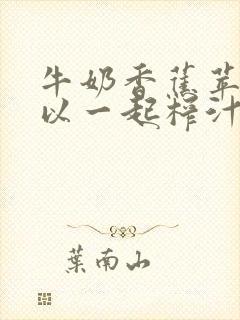 牛奶香蕉苹
以一起榨汁
葉南山